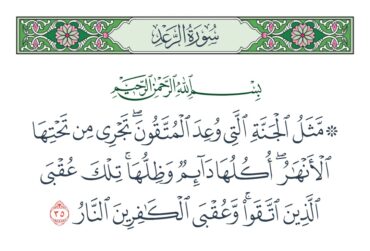 سُورَةُ الرَّعْدِ
بِسْمِ اللَّهِ الرَّحْمَٰنِ الرَّحِيمِ
۞ مَّثَلُ الْجَنَّةِ الَّتِي وُعِدَ الْمُتَّقُونَ ۖ تَجْرِي مِن تَحْتِهَا
الْأَنْهَارُ ۖ أُكُلُهَا دَائِمٌ وَظِلُّهَا ۚ تِلْكَ عُقْبَى
الَّذِينَ اتَّقَوا ۖ وَّعُقْبَى الْكَافِرِينَ النَّارُ ٣٥